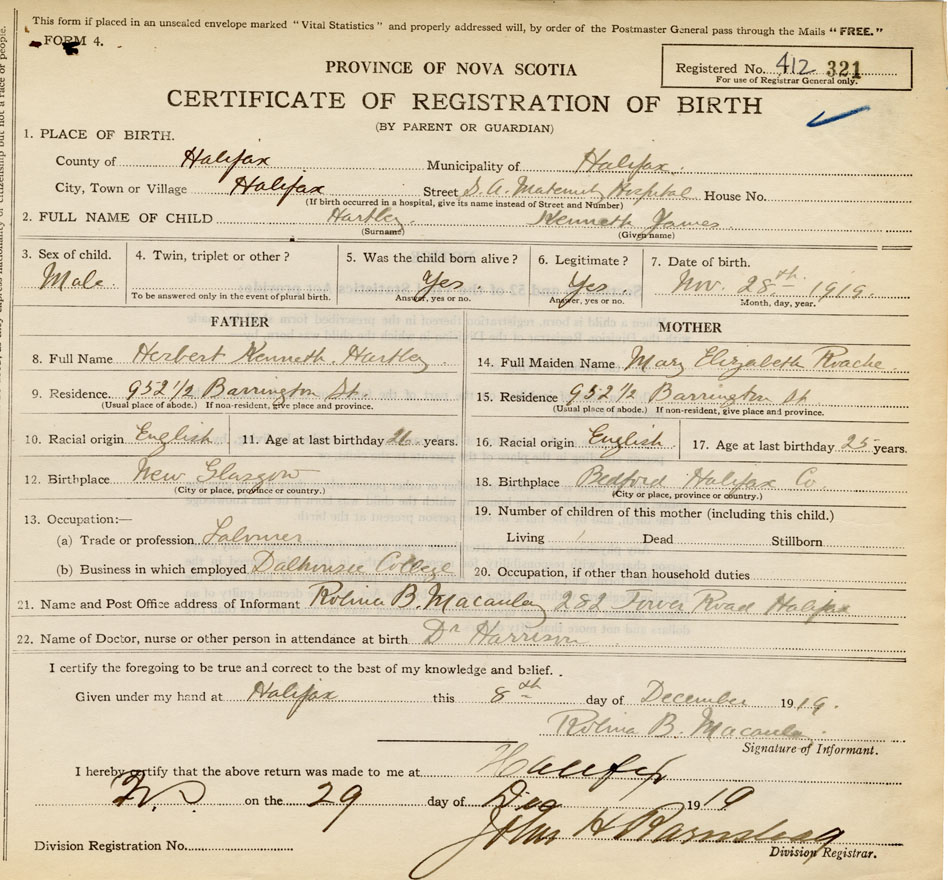 This form if placed in an unsealed envelope marked "Vital Statistics" and properly addressed will, by order of the Postmaster General pass through the Mails "FREE."
FORM 4.
Registered No. 412 321
For use of Registrar General only.
PROVINCE OF NOVA SCOTIA
CERTIFICATE OF REGISTRATION OF BIRTH
(BY PARENT OR GUARDIAN)
1. PLACE OF BIRTH.
County of Halifax Municipality of Halifax
City, Town or Village Halifax Street S. A. Maternity Hospital House No.
(If birth occurred in a hospital, give its name instead of Street and Number)
2. FULL NAME OF CHILD Hartley Kenneth James
(Surname) (Given name)
3. Sex of child. 4. Twin, triplet or other? 5. Was the child born alive? 6. Legitimate? 7. Date of birth.
Male Yes. Yes. Nov. 28th 1919.
To be answered only in the event of plural birth. Answer, yes or no. Answer, yes or no. Month, day, year.
FATHER MOTHER
8. Full Name Herbert Kenneth Hartley 14. Full Maiden Name Mary Elizabeth Roache
9. Residence. 952 1/2 Barrington St. 15. Residence 952 1/2 Barrington St.
(Usual place of abode.) If non-resident, give place and province. (Usual place of abode.) If non-resident, give place and province.
10. Racial origin English 11. Age at last birthday years. 16. Racial origin English. 17. Age at last birthday 25 years.
12. Birthplace New Glasgow 18. Birthplace Bedford Halifax Co.
(City or place, province or country.) (City or place, province or country.)
13. Occupation:— 19. Number of children of this mother (including this child.)
(a) Trade or profession Labourer Living 1 Dead Stillborn
(b) Business in which employed Dalhousie College 20. Occupation, if other than household duties
21. Name and Post Office address of Informant Rolina B. Macaulay 282 Tower Road Halifax
22. Name of Doctor, nurse or other person in attendance at birth Dr Harrison
I certify the foregoing to be true and correct to the best of my knowledge and belief.
Given under my hand at Halifax this 8th day of December 1919.
Rolina B. Macaulay.
Signature of Informant.
I hereby certify that the above return was made to me at Halifax
on the 29 day of Dec 1919
John H
Division Registration No. Division Registrar.